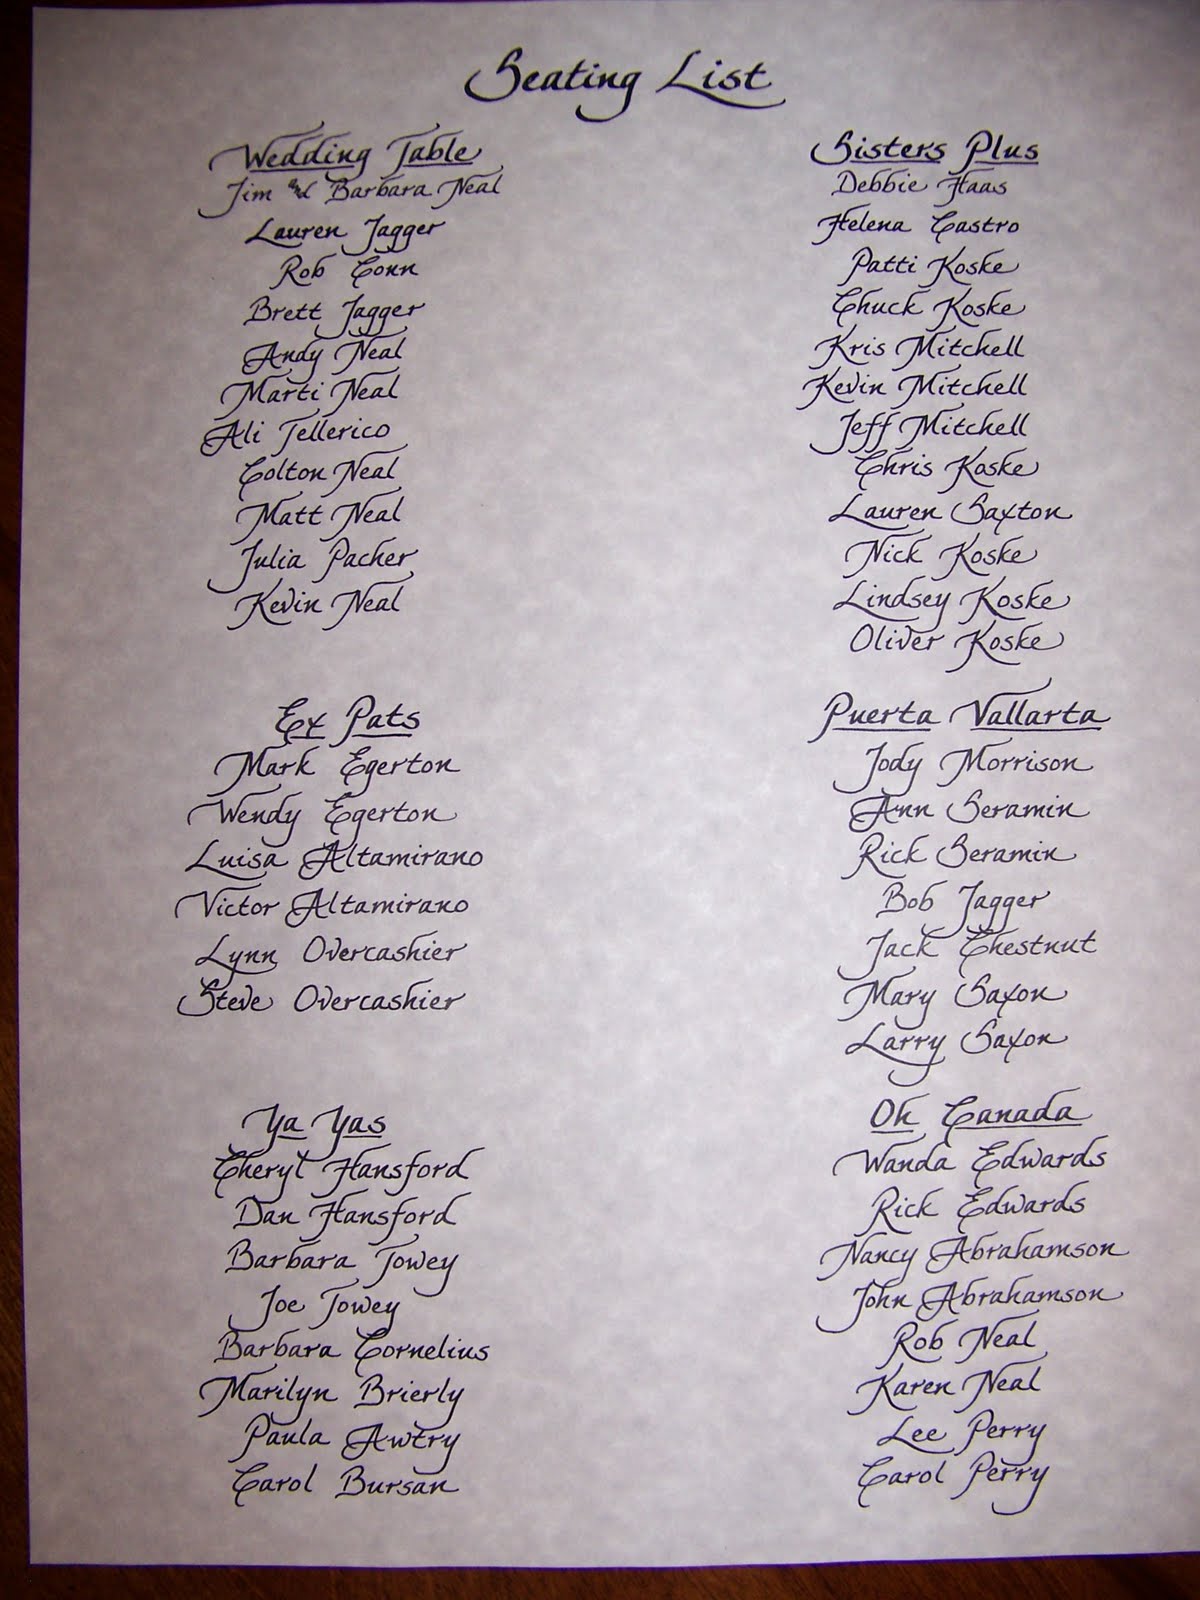 Seating List
Wedding Table
Jim and Barbara Neal
Lauren Jagger
Rob Conn
Brett Jagger
Andy Neal
Marti Neal
Ali Tellerico
Colton Neal
Matt Neal
Julia Pacher
Kevin Neal
Sisters Plus
Debbie Haas
Helena Castro
Patti Koske
Chuck Koske
Kris Mitchell
Kevin Mitchell
Jeff Mitchell
Chris Koske
Lauren Saxton
Nick Koske
Lindsey Koske
Oliver Koske
Ex Pats
Mark Egerton
Wendy Egerton
Luisa Altamirano
Victor Altamirano
Lynn Overcashier
Steve Overcashier
Puerta Vallarta
Jody Morrison
Ann Seramin
Rick Seramin
Bob Jagger
Jack Chestnut
Mary Saxon
Larry Saxon
Ya Yas
Cheryl Hansford
Dan Hansford
Barbara Towey
Joe Towey
Barbara Cornelius
Marilyn Brierly
Paula Awtry
Carol Bursan
Oh Canada
Wanda Edwards
Rick Edwards
Nancy Abrahamson
John Abrahamson
Rob Neal
Karen Neal
Lee Perry
Carol Perry